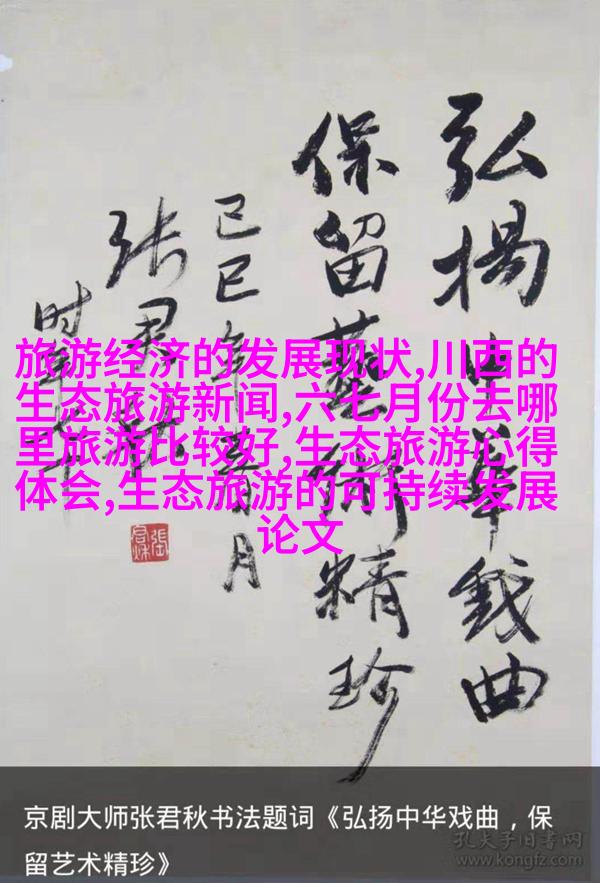 弘揚中華戲曲
保留藝術精珍
己巳年春月
张君秋
时年七十
旅游经济的发展现状,川西的
生态旅游新闻,六七月份去哪
里旅游比较好,生态旅游心得
体会,生态旅游的可持续发展
论文
京剧大师张君秋书法题词《弘扬中华戏曲，保
留艺术精珍》
孔夫子旧书网
www.kongfz.com